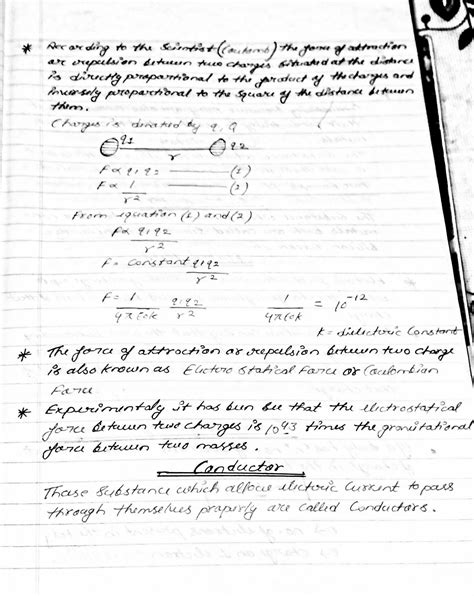 * According to the Scientist (Coulomb) the force of attraction
or repulsion between two charges situated at the distance
is directly proportional to the product of the charges and
inversely proportional to the square of the distance between
them.
Charges is denoted by q, Q
q1 q2
r
F ∝ q1q2 ——— (1)
F ∝ 1/r2 ——— (2)
From equation (1) and (2)
F ∝ q1q2/r2
F = Constant q1q2/r2
F = 1/4π€0k q1q2/r2 1/4π€0k = 10-12
k = dielectric Constant
* The force of attraction or repulsion between two charge
is also known as Electro statical Force or Coulombian
Force
* Experimentaly it has bun see that the electrostatical
force between two charges is 1043 times the gravitational
force between two masses.
Conductor
Those Substance which allow electric Current to pass
through themselves properly are called Conductors.